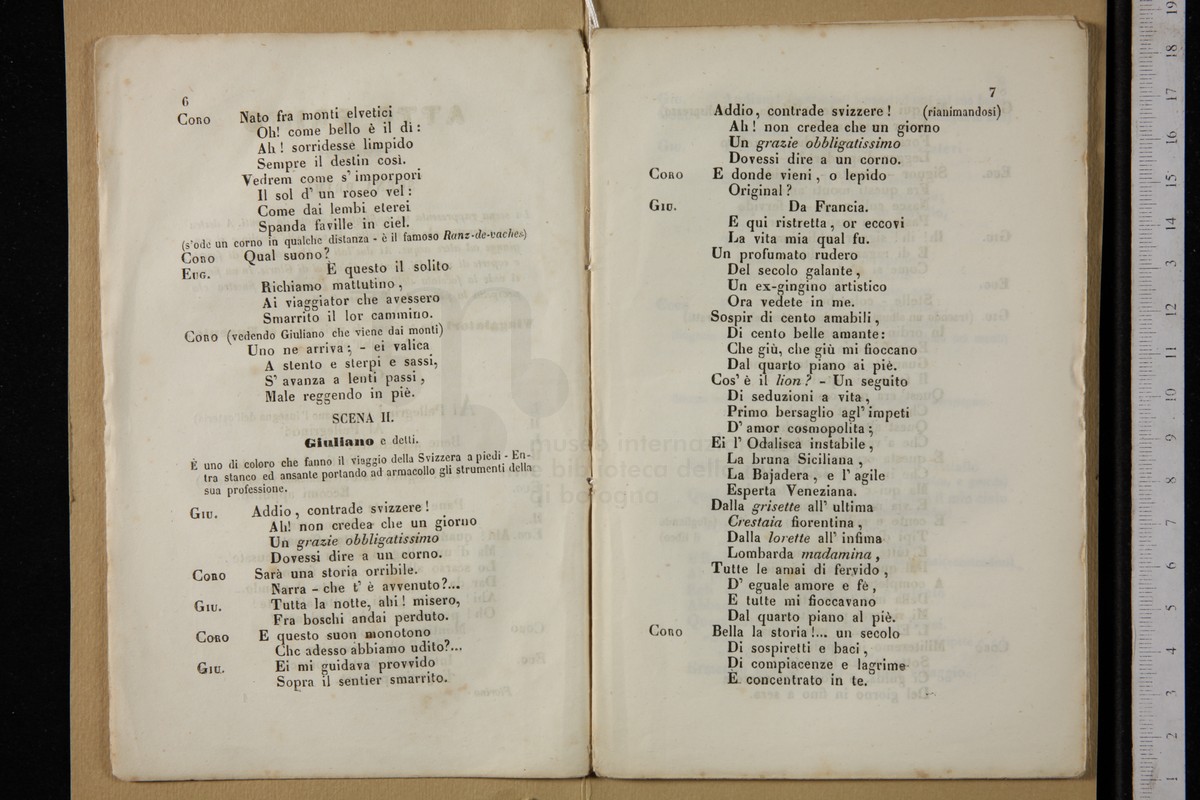 6
CORO Nato fra monti elvetici
Oh! come bello è il dì:
Ah! sorridesse limpido
Sempre il destin così.
Vedrem come s' imporpori
Il sol d' un roseo vel:
Come dai lembi eterei
Spanda faville in ciel.
(s'ode un corno in qualche distanza - è il famoso Ranz-de-vaches)
CORO Qual suono?
EUG. È questo il solito
Richiamo mattutino,
Ai viaggiator che avessero
Smarrito il lor cammino.
CORO (vedendo Giuliano che viene dai monti)
Uno ne arriva; - ei valica
A stento e sterpi e sassi,
S' avanza a lenti passi,
Male reggendo in piè.
SCENA II.
Giuliano e detti.
È uno di coloro che fanno il viaggio della Svizzera a piedi - En-
tra stanco ed ansante portando ad armacollo gli strumenti della
sua professione.
GIU. Addio, contrade svizzere!
Ah! non credea che un giorno
Un grazie obbligatissimo
Dovessi dire a un corno.
CORO Sarà una storia orribile.
Narra - che t' è avvenuto?...
GIU. Tutta la notte, ahi! misero,
Fra boschi andai perduto.
CORO E questo suon monotono
Che adesso abbiamo udito?...
GIU. Ei mi guidava provvido
Sopra il sentier smarrito.
7
Addio, contrade svizzere! (rianimandosi)
Ah! non credea che un giorno
Un grazie obbligatissimo
Dovessi dire a un corno.
CORO E donde vieni, o lepido
Original?
GIU. Da Francia.
E qui ristretta, or eccovi
La vita mia qual fu.
Un profumato rudero
Del secolo galante,
Un ex-gingino artistico
Ora vedete in me.
Sospir di cento amabili,
Di cento belle amante:
Che giù, che giù mi fioccano
Dal quarto piano ai piè.
Cos' è il lion? - Un seguito
Di seduzioni a vita,
Primo bersaglio agl' impeti
D' amor cosmopolita;
Ei l' Odalisca instabile,
La bruna Siciliana,
La Bajadera, e l' agile
Esperta Veneziana.
Dalla grisette all' ultima
Crestaia fiorentina,
Dalla lorette all' infima
Lombarda madamina,
Tutte le amai di fervido,
D' eguale amore e fè,
E tutte mi fioccavano
Dal quarto piano al piè.
CORO Bella la storia!... un secolo
Di sospiretti e baci,
Di compiacenze e lagrime
È concentrato in te.
museo internazionale
e biblioteca della musica
di bologna